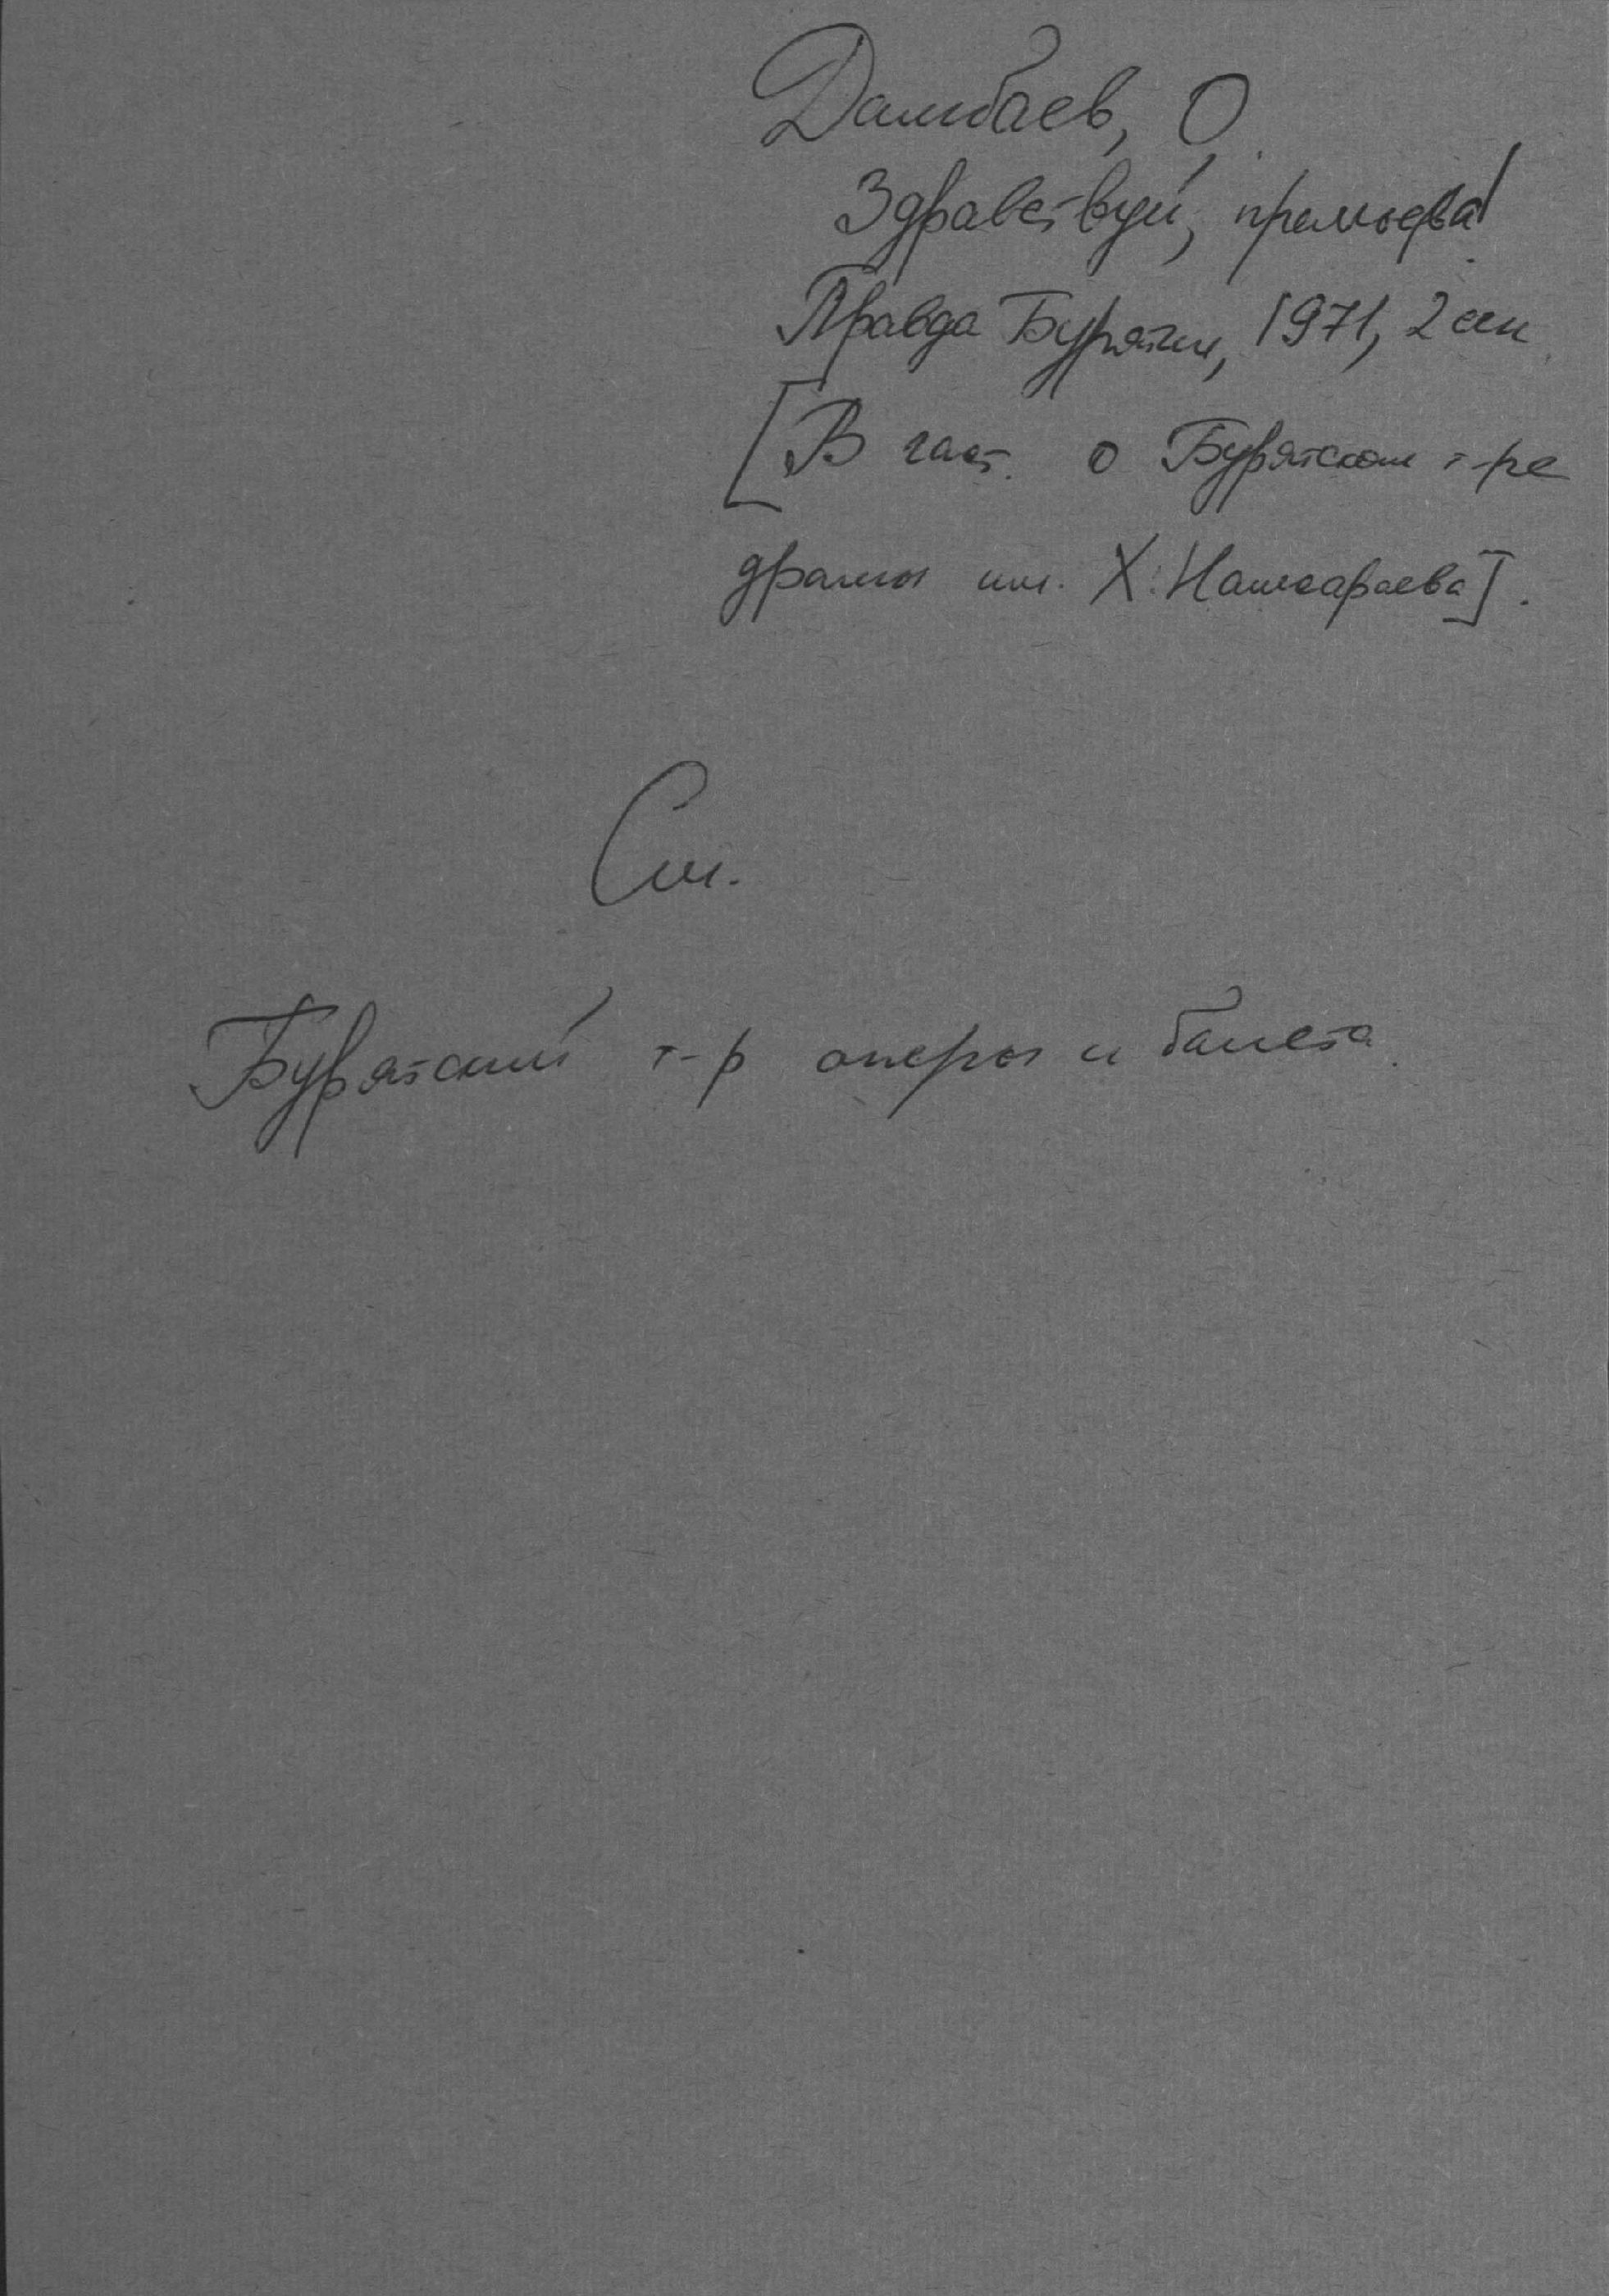 Дамбаев, О.
Здравствуй, премьера!
Правда Бурятии, 1971, 2 сен.
[В част. о Бурятском т-ре
драмы им. Х. Намсараева].
См.
Бурятский т-р оперы и балета.